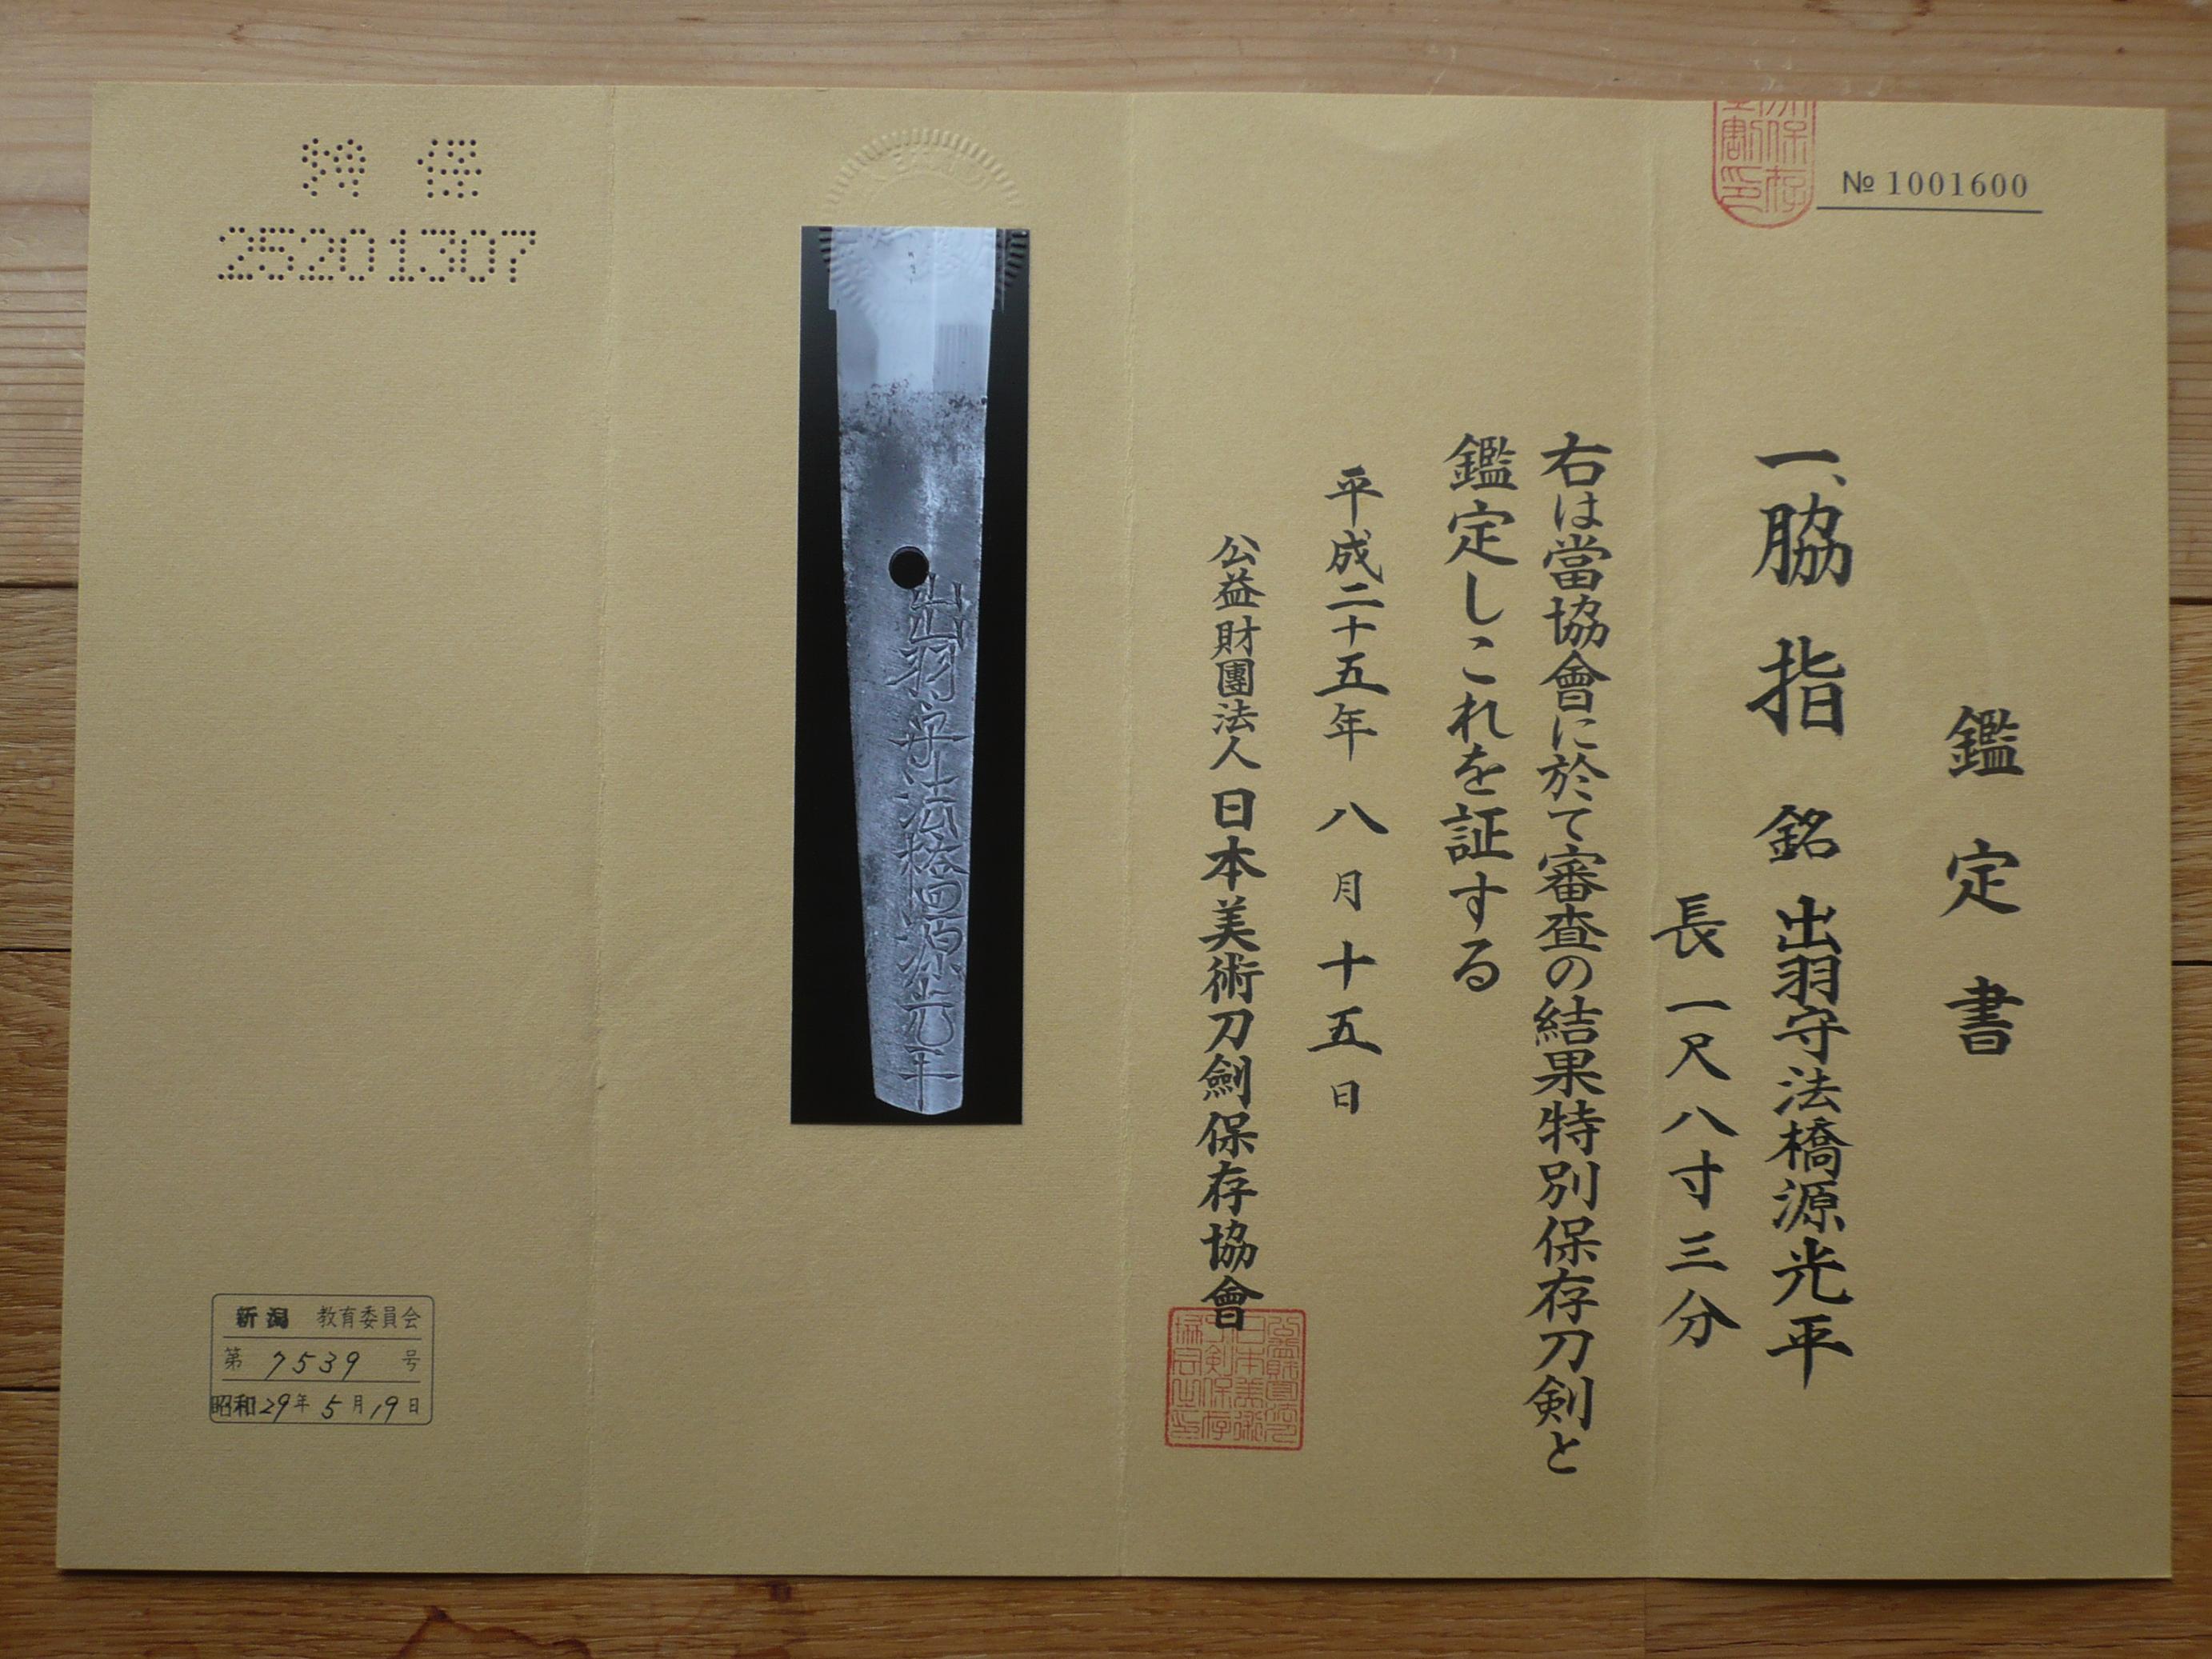 № 1001600
鑑定書
一、脇指 銘 出羽守法橋源光平
長一尺八寸三分
右は當協會に於て審査の結果特別保存刀剣と
鑑定しこれを証する
平成二十五年八月十五日
公益財團法人日本美術刀劍保存協會
出羽守法橋源光平
特保
25201307
新潟 教育委員会
第 7539 号
昭和29年5月19日